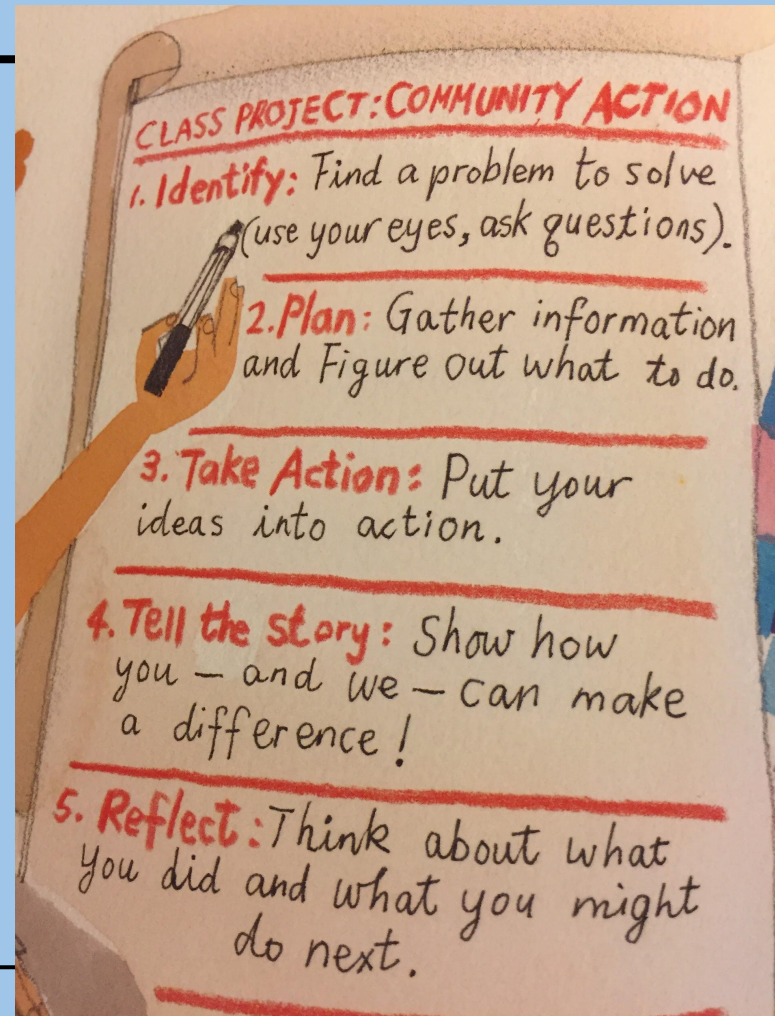 CLASS PROJECT: COMMUNITY ACTION
1. Identify: Find a problem to solve
(use your eyes, ask questions).
2. Plan: Gather information
and Figure out what to do.
3. Take Action: Put your
ideas into action.
4. Tell the story: Show how
you – and we – can make
a difference!
5. Reflect: Think about what
you did and what you might
do next.